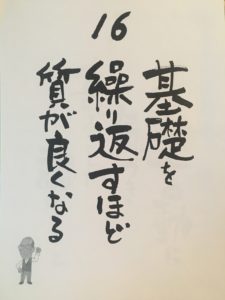 16
基礎を
繰り返すほど
質が良くなる